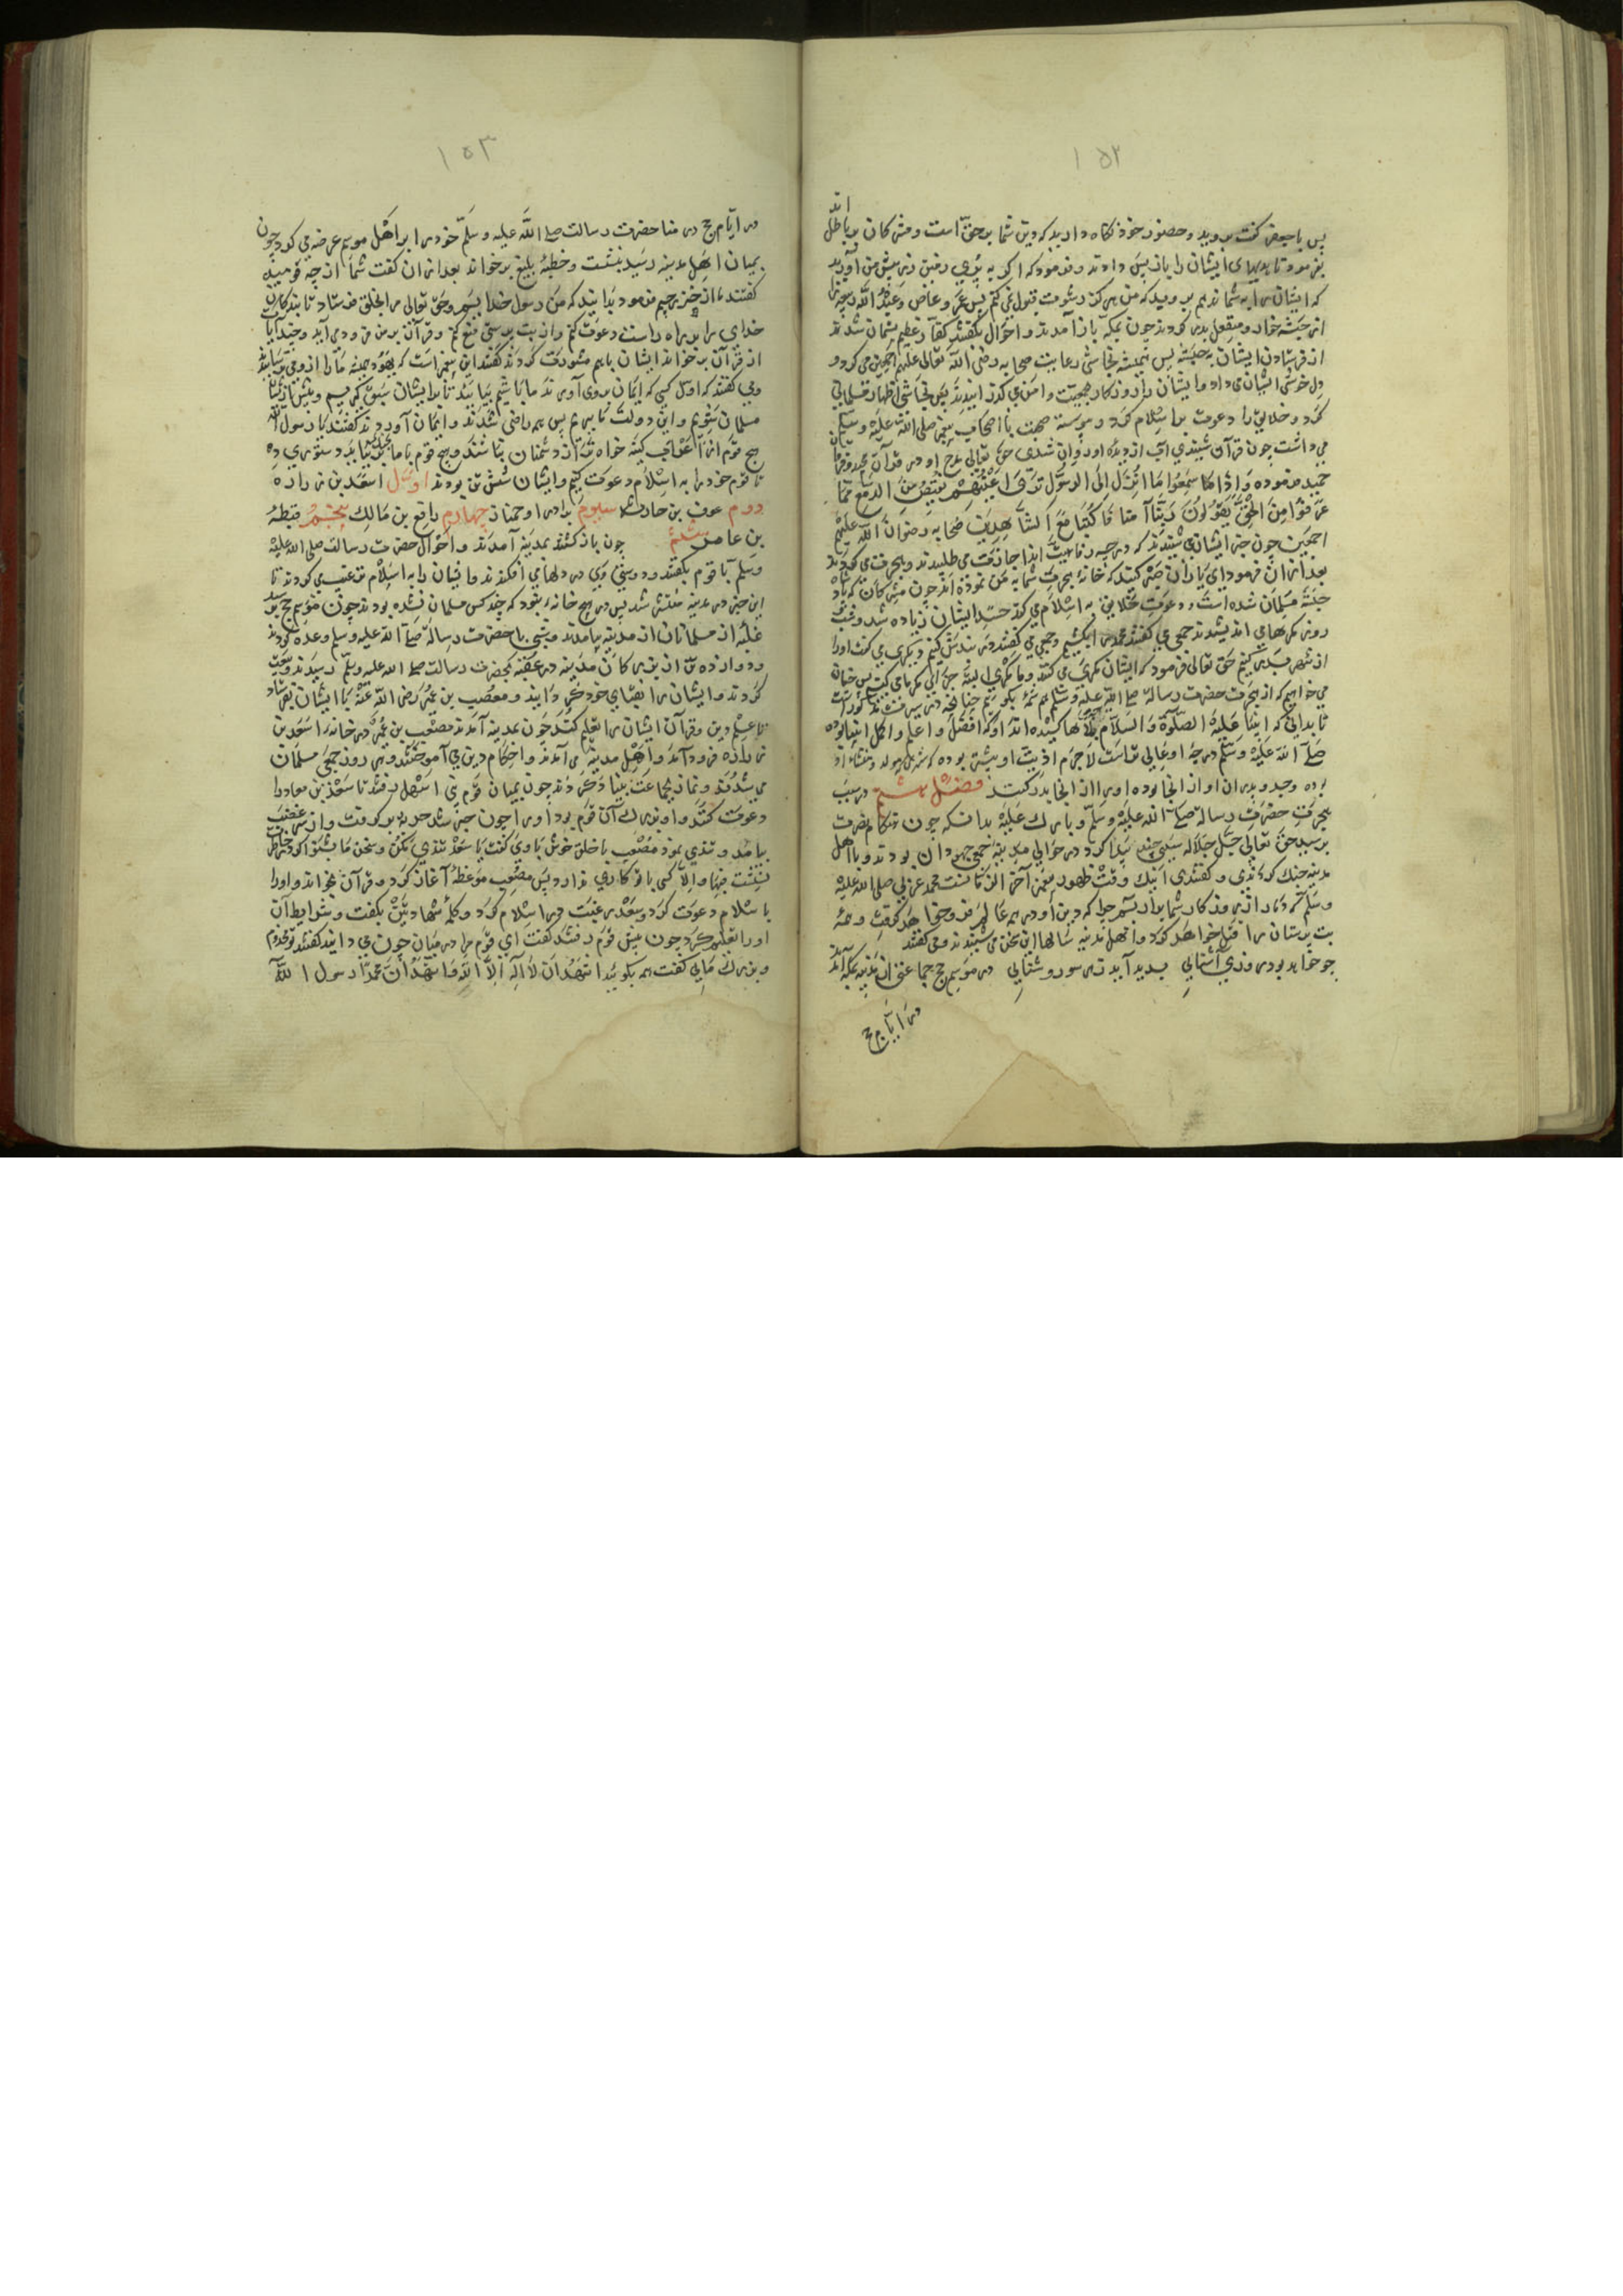 ١٥٢
پس با جعفر گفت بروید و حضور خود نگاه دارید که دین شما بر حق است و مشرکان بر باطل اند
بفرمود تا هدیهای ایشان را باز پس دادند و فرمود که اگر به پری رفتن زر پیش من آورید
که ایشان را به شما ندهم بروید که من هرگز رشوت قبول نمی کنم پس عمرو عاص و عبد الله ربیعه را
از حبشه خوار و منفعل بدر کردند چون بمکه باز آمدند و احوال بگفتند کفار عظیم پشمان شدند
از فرستادن ایشان به حبشه پس همیشه نجاشی رعایت صحابه رضی الله تعالی علیهم اجمعین می کرد و
دل خوشی ایشان می داد و ایشان را روزگار بجمعیت و امن می گذرانیدند پس نجاشی اظهار مسلمانی
کرد و خلایق را دعوت بر اسلام کرد و پیوسته صحبت با اصحاب پیغمبر صلی الله علیه و سلم
می داشت چون قرآن شنیدی آب از دیده او روان شدی حق تعالی مدح او در قرآن مجید و فرقان
حمید فرموده وَاِذَا سَمِعُوا مَا اُنْزِلَ اِلَی الرَّسُولِ تَرَی اَعْیُنَهُمْ تَفِیضُ مِنَ الدَّمْعِ مِمَّا
عَرَفُوا مِنَ الْحَقِّ یَقُولُونَ رَبَّنَا آمَنَّا فَاکْتُبْنَا مَعَ الشَّاهِدِینَ صحابه رضوان الله علیهم
اجمعین چون خبر ایشان می شنیدند که در چه رفاهیت اند اجازت می طلبیدند و بهجرت می کردند
بعد از آن فرمود ای یاران صبر کنید که خانه هجرت شما به من نموده اند چون مشرکان که شاه
حبشه مسلمان شده است و دعوت خلایق به اسلام می کند حسد ایشان زیاده شد و هر
روز مکرها می اندیشیدند جمعی می گفتند محمد را بکشیم و جمعی می گفتند در بندش کنیم و دیگری می گفت او را
از شهر بدر کنیم حق تعالی فرمود که ایشان مکری می کنند و ما مکر ایشان را جزای مکر با می کنیم پس چنان
می خواهیم که از هجرت حضرت رساله صلی الله علیه و سلم هم شمه بگوییم چنانچه در سیرت مذکور است
تا بدانی که انبیا علیه الصلوة و السلام بلاها کشیده اند او که افضل و اعلم و اکمل انبیا بوده
صلی الله علیه و سلم درجه او عالی تر است لاجرم اذیت او بیشتر بوده که شهر مولد و منشاء او
بوده و جد و پدران او از آنجا بوده او را از آنجا بدر کنند فصل هشتم در سبب
هجرت حضرت رساله صلی الله علیه و سلم و بارک علیه بدانکه چون هنگام نصرت
برسید حق تعالی جل جلاله سببی چند پیدا کرد در حوالی مدینه جمعی جهودان بودند و با اهل
مدینه جنگ کردندی و گفتندی اینک وقت ظهور پیغمبر آخر الزمانست محمد عربی صلی الله علیه
و سلم که دمار از روزگار شما برآرد بسر جمله که دین او در همه عالم فرو خواهد گرفت و همه
بت پرستان را قتل خواهد کرد و اهل مدینه سالها این سخن می شنیدند و می گفتند
چو خواهد بود روزی آشنایی پدید آید ز هر سو روشنایی در موسم حج جماعتی از مدینه بمکه آمدند
در ایام حج
١٥٣
در ایام حج در منا حضرت رسالت صلی الله علیه و سلم خود را بر اهل موسم عرضه می کرد چون
بمیان اهل مدینه رسید بنشست و خطبه بلیغ برخواند بعد از آن گفت شما از چه قومید
گفتند ما از خزرجیم فرمود بدانید که من رسول خدایم و حق تعالی مرا بخلق فرستاد تا بندگان
خدای را براه راست دعوت کنم و از بت پرستی منع کنم و قرآن بر من فرود می آید و چند آیات
از قرآن برخواند ایشان باهم مشورت کردند گفتند این پیغمبر است که یهود همیشه ما را از وی می ترسانند
و می گفتند که اول کسی که ایمان بروی آورند ما باشیم بیایید تا بر ایشان سبق گیریم و پیش از ایشان
مسلمان شویم و این دولت ما بریم پس همه راضی شدند و ایمان آوردند گفتند یا رسول الله
هیچ قوم از ما کینه خواه تر و دشمنان نباشند و هیچ قوم با ما نیاید دستوری ده
تا قوم خود را به اسلام دعوت کنیم و ایشان شش تن بودند اول اسعد بن زراره
دوم عوف بن حارث سیوم برادر او چهارم رافع بن مالک پنجم قطبه
بن عامر ششم چون باز گشتند بمدینه آمدند و احوال حضرت رسالت صلی الله علیه
و سلم با قوم بگفتند و دوستی وی در دلها می افکندند و ایشان را به اسلام ترغیب می کردند تا
این خبر در مدینه منتشر شد پس در هیچ خانه نبود که چند کس مسلمان نشده بودند چون موسم حج برسید
غلبه از مسلمانان از مدینه بیامدند و شبی با حضرت رساله صلی الله علیه و سلم وعده کردند
و دوازده تن از بزرگان مدینه در عقبه بحضرت رسالت صلی الله علیه و سلم رسیدند و بیعت
کردند و ایشان را نقبای خود گردانید و مصعب بن عمیر رضی الله عنه با ایشان بفرستاد
تا علم دین و قرآن ایشان را تعلیم کند چون بمدینه آمدند مصعب بن عمیر در خانه اسعد بن
زراره فرود آمد و اهل مدینه می آمدند و احکام دین می آموختند و هر روز جمعی مسلمان
می شدند و نماز بجماعت بنیاد کردند چون بمیان قوم بنی اسهل رفتند تا سعد بن معاد را
دعوت کنند و او بزرگ آن قوم بود او را چون خبر شد حربه بر گرفت و از سر غضب
بیامد و تندی نمود مصعب با خلق خوش با وی گفت یا سعد تندی مکن و سخن ما بشنو اگر در خاطرت
نشست فبها و الا کسی با تو کاری ندارد پس مصعب موعظه آغاز کرد و قرآن بخواند و او را
باسلام دعوت کرد و سعد رغبت در اسلام کرد و کلمه شهادتین بگفت و شرایط آن
او را تعلیم کرد چون پیش قوم رفتند گفت ای قوم مرا در میان چون می دانید گفتند تو مخدوم
و بزرگ مایی گفت همه بگویید اشهد ان لا اله الا الله و اشهد ان محمدا رسول الله